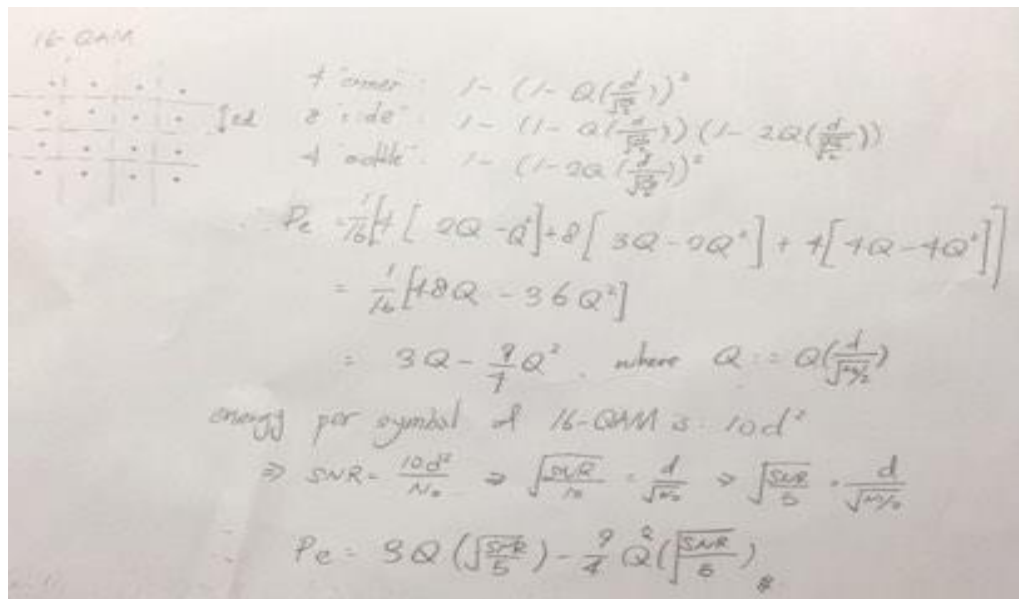 16-QAM
2d
4 "corner": 1 - (1 - Q(d/√(N₀/2)))²
8 "side": 1 - (1 - Q(d/√(N₀/2)))(1 - 2Q(d/√(N₀/2)))
4 "middle": 1 - (1 - 2Q(d/√(N₀/2)))²
∴ Pe = 1/16 [4[2Q - Q²] + 8[3Q - 2Q²] + 4[4Q - 4Q²]]
= 1/16 [48Q - 36Q²]
= 3Q - 9/4 Q², where Q := Q(d/√(N₀/2))
energy per symbol of 16-QAM is: 10d²
⇒ SNR = 10d²/N₀ ⇒ √(SNR/10) = d/√N₀ ⇒ √(SNR/5) = d/√(N₀/2)
Pe = 3Q(√(SNR/5)) - 9/4 Q²(√(SNR/5))